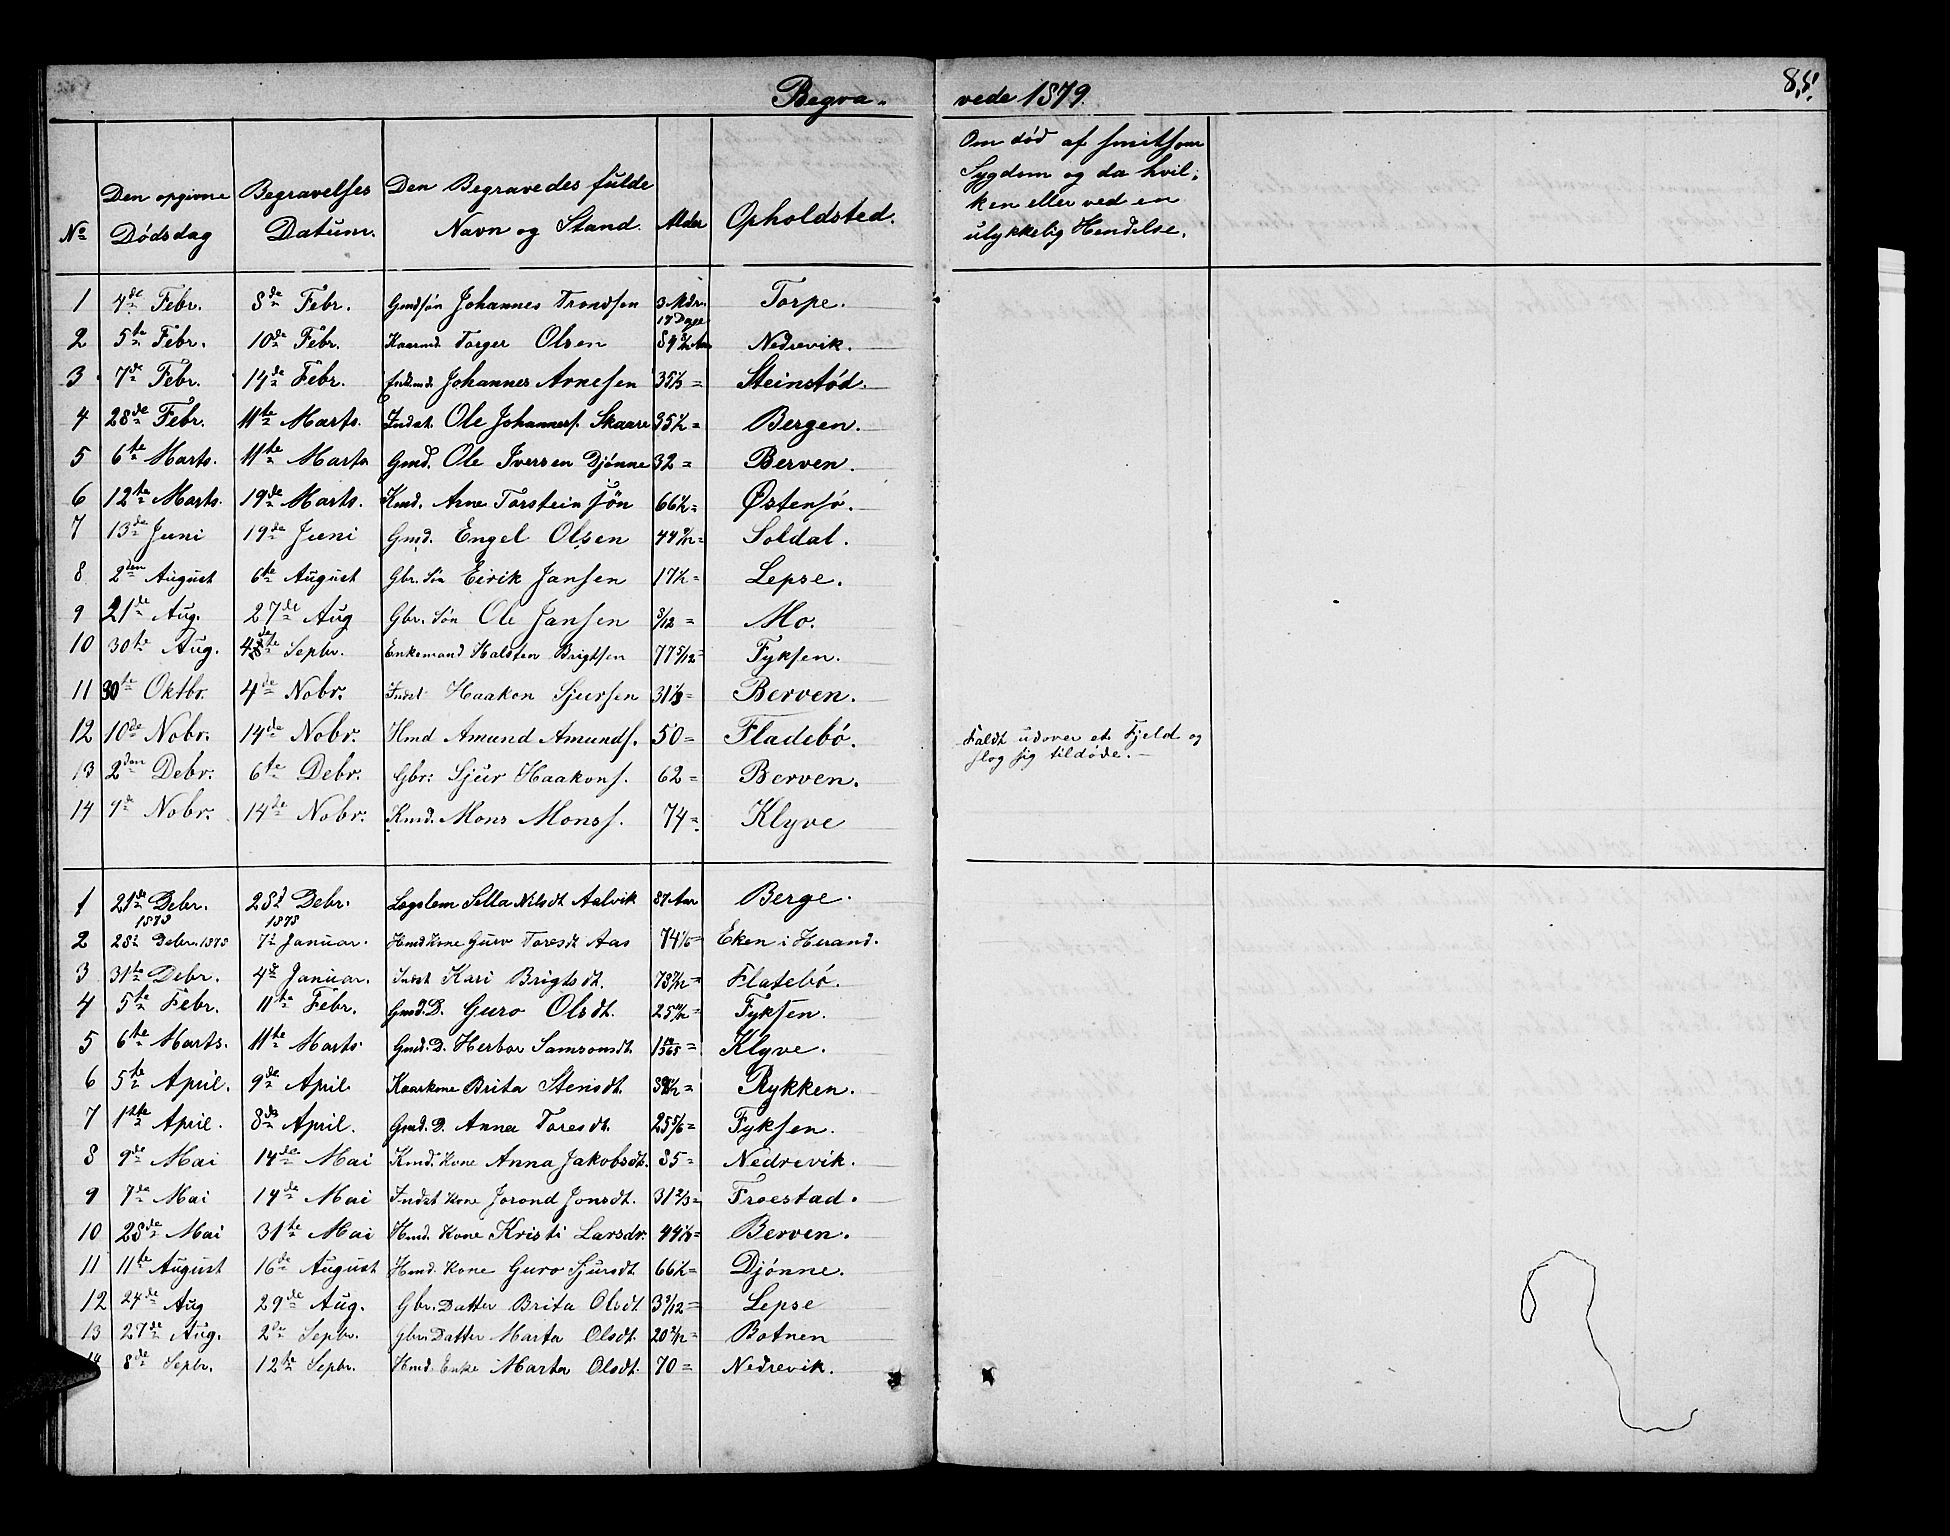 Begra-
vede 1879.
85.
No
Den opgivne Dødsdag
Begravelses Datum.
Den Begravedes fulde Navn og Stand.
Alder
Opholdsted.
Om død af smitsom
Sygdom og da hvil-
ken eller ved en
ulykkelig Hendelse.
1 4de Febr. 8de Febr. Gmdsøn Johannes Trondsen 3 Mdr. 17 Dage Torpe.
2 5te Febr. 10de Febr. Kaarmd. Torger Olsen Nedrevik.
3 7de Febr. 14de Febr. Johannes Arnesen 35 1/3 = Steinstød.
4 28de Febr. 11te Marts. Indst. Ole Johanness. Skaare 35 1/2 = Bergen.
5 6te Marts. 11te Marts Gmd. Ole Iversen Djønne 32 = Berven.
6 12te Marts. 19de Marts. Kmd. Arne Torsteinsøn 66 1/2 = Østensø.
7 13de Juni 19de Juni Gmd. Engel Olsen Soldal.
8 2den August 6te August Gbr. Søn Eirik Jansen 17 1/2 = Lepse.
9 21de Aug. 27de Aug Gbr. Søn Ole Jansen 8/12 = Mo.
10 30te Aug. Sepbr. Enkemand Halsten Brigtsen 77 5/12 = Fyksen.
11 30te Oktbr. 4de Nobr. Indst Haakon Sjursen 31 1/3 = Berven.
12 10de Nobr. 14de Nobr. Hmd Amund Amunds. 50 = Fladebø. Faldt udover et Fjeld og
slog sig tildøde. —
13 2den Debr. 6te Debr. Gbr: Sjur Haakons. 62 = Berven.
14 9de Nobr. 14de Nobr. Kmd. Mons Monss. 74 = Klyve
1 21de Debr. 1878 28d Debr. 1878 Lægslem Sella Nilsdt Aalvik 87 Aar Berge.
2 28d Debr. 1878 7d Januar. Hmd Kone Guro Toresdt Aas 74 1/6 = Eken i Herand.
3 31te Debr. 4d Januar. Indst Kari Brigtsdt. Flatebø.
4 5te Febr. 11te Febr. Gmd. D. Guro Olsdt. Fyksen.
5 6te Marts. 11te Marts Gmd. D. Herbor Samsonsdt. Klyve.
6 5te April. 9de April Kaarkone Brita Stensdt. Rykken.
7 1ste April. 8de April. Gmd. D. Anna Toresdt. 25 5/6 = Fyksen.
8 9de Mai 14de Mai Kmd. Kone Anna Jakobsdt. 85 = Nedrevik.
9 7de Mai 14de Mai Indst Kone Jorond Jonsdt. 31 2/3 = Froestad.
10 28de Mai 31te Mai Hmd. Kone Kristi Larsdr. Berven.
11 11te August 16de August Hmd. Kone Guro Sjursdt 66 1/2 = Djønne.
12 24de Aug 29de Aug. Gbr. Datter Brita Olsdt 3 3/12 = Lepse
13 27de Aug. 2de Sepbr. Gbr. Datter Marta Olsdt. Botnen
14 8de Sepbr. 12te Sepbr. Hmd. Enke Marta Olsdt. 70 = Nedrevik.